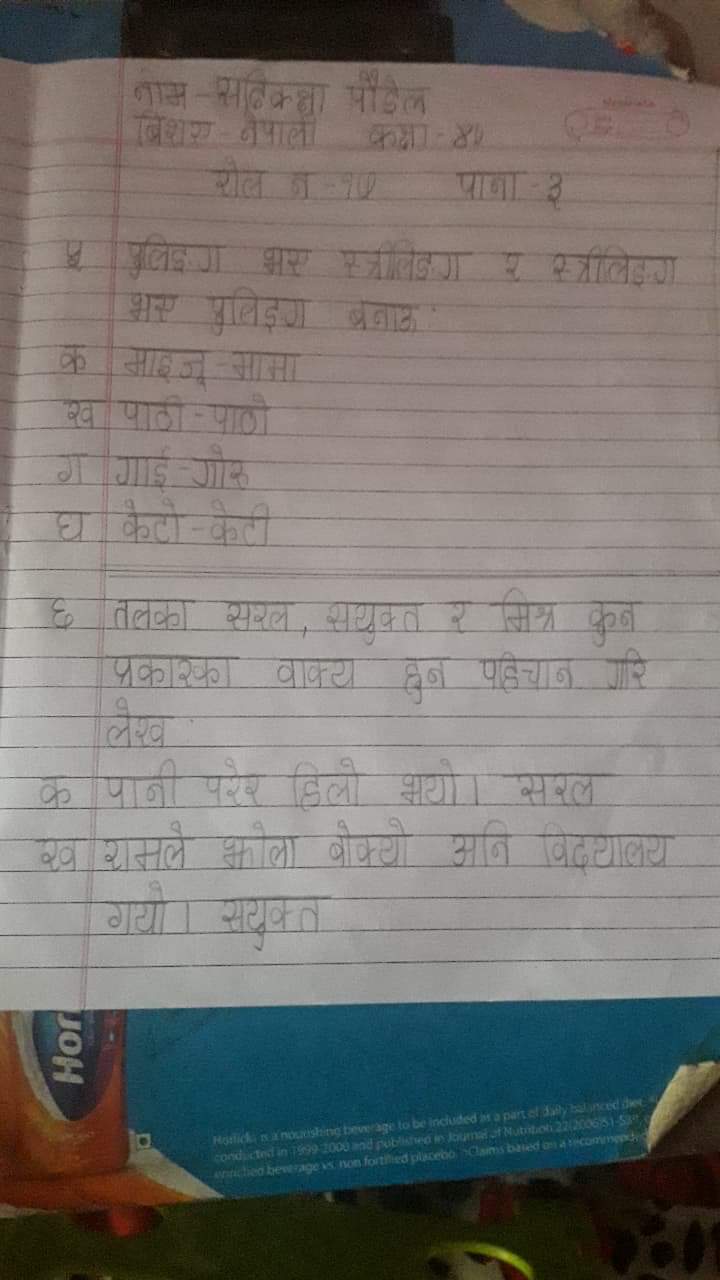 नाम - सदिक्षा पौडेल
बिशय - नेपाली कक्षा - ४
रोल न - १५ पाना - ३
५ पुलिङ्ग भए स्त्रीलिङ्ग र स्त्रीलिङ्ग
भए पुलिङ्ग बनाऊ
क माइजू - मामा
ख पाठी - पाठो
ग गाई - गोरु
घ केटो - केटी
६ तलका सरल, सयुक्त र मिश्र कुन
प्रकारका वाक्य हुन पहिचान गरि
लेख
क पानी परेर हिलो भयो। सरल
ख रामले झोला बोक्यो अनि विद्यालय
गयो। सयुक्त
Hor
Horlicks is a nourishing beverage to be included as a part of daily balanced diet.
conducted in 1999-2000 and published in Journal of Nutrition 22(2006)S1-S
enriched beverage vs. non fortified placebo. Claims based on a recommended